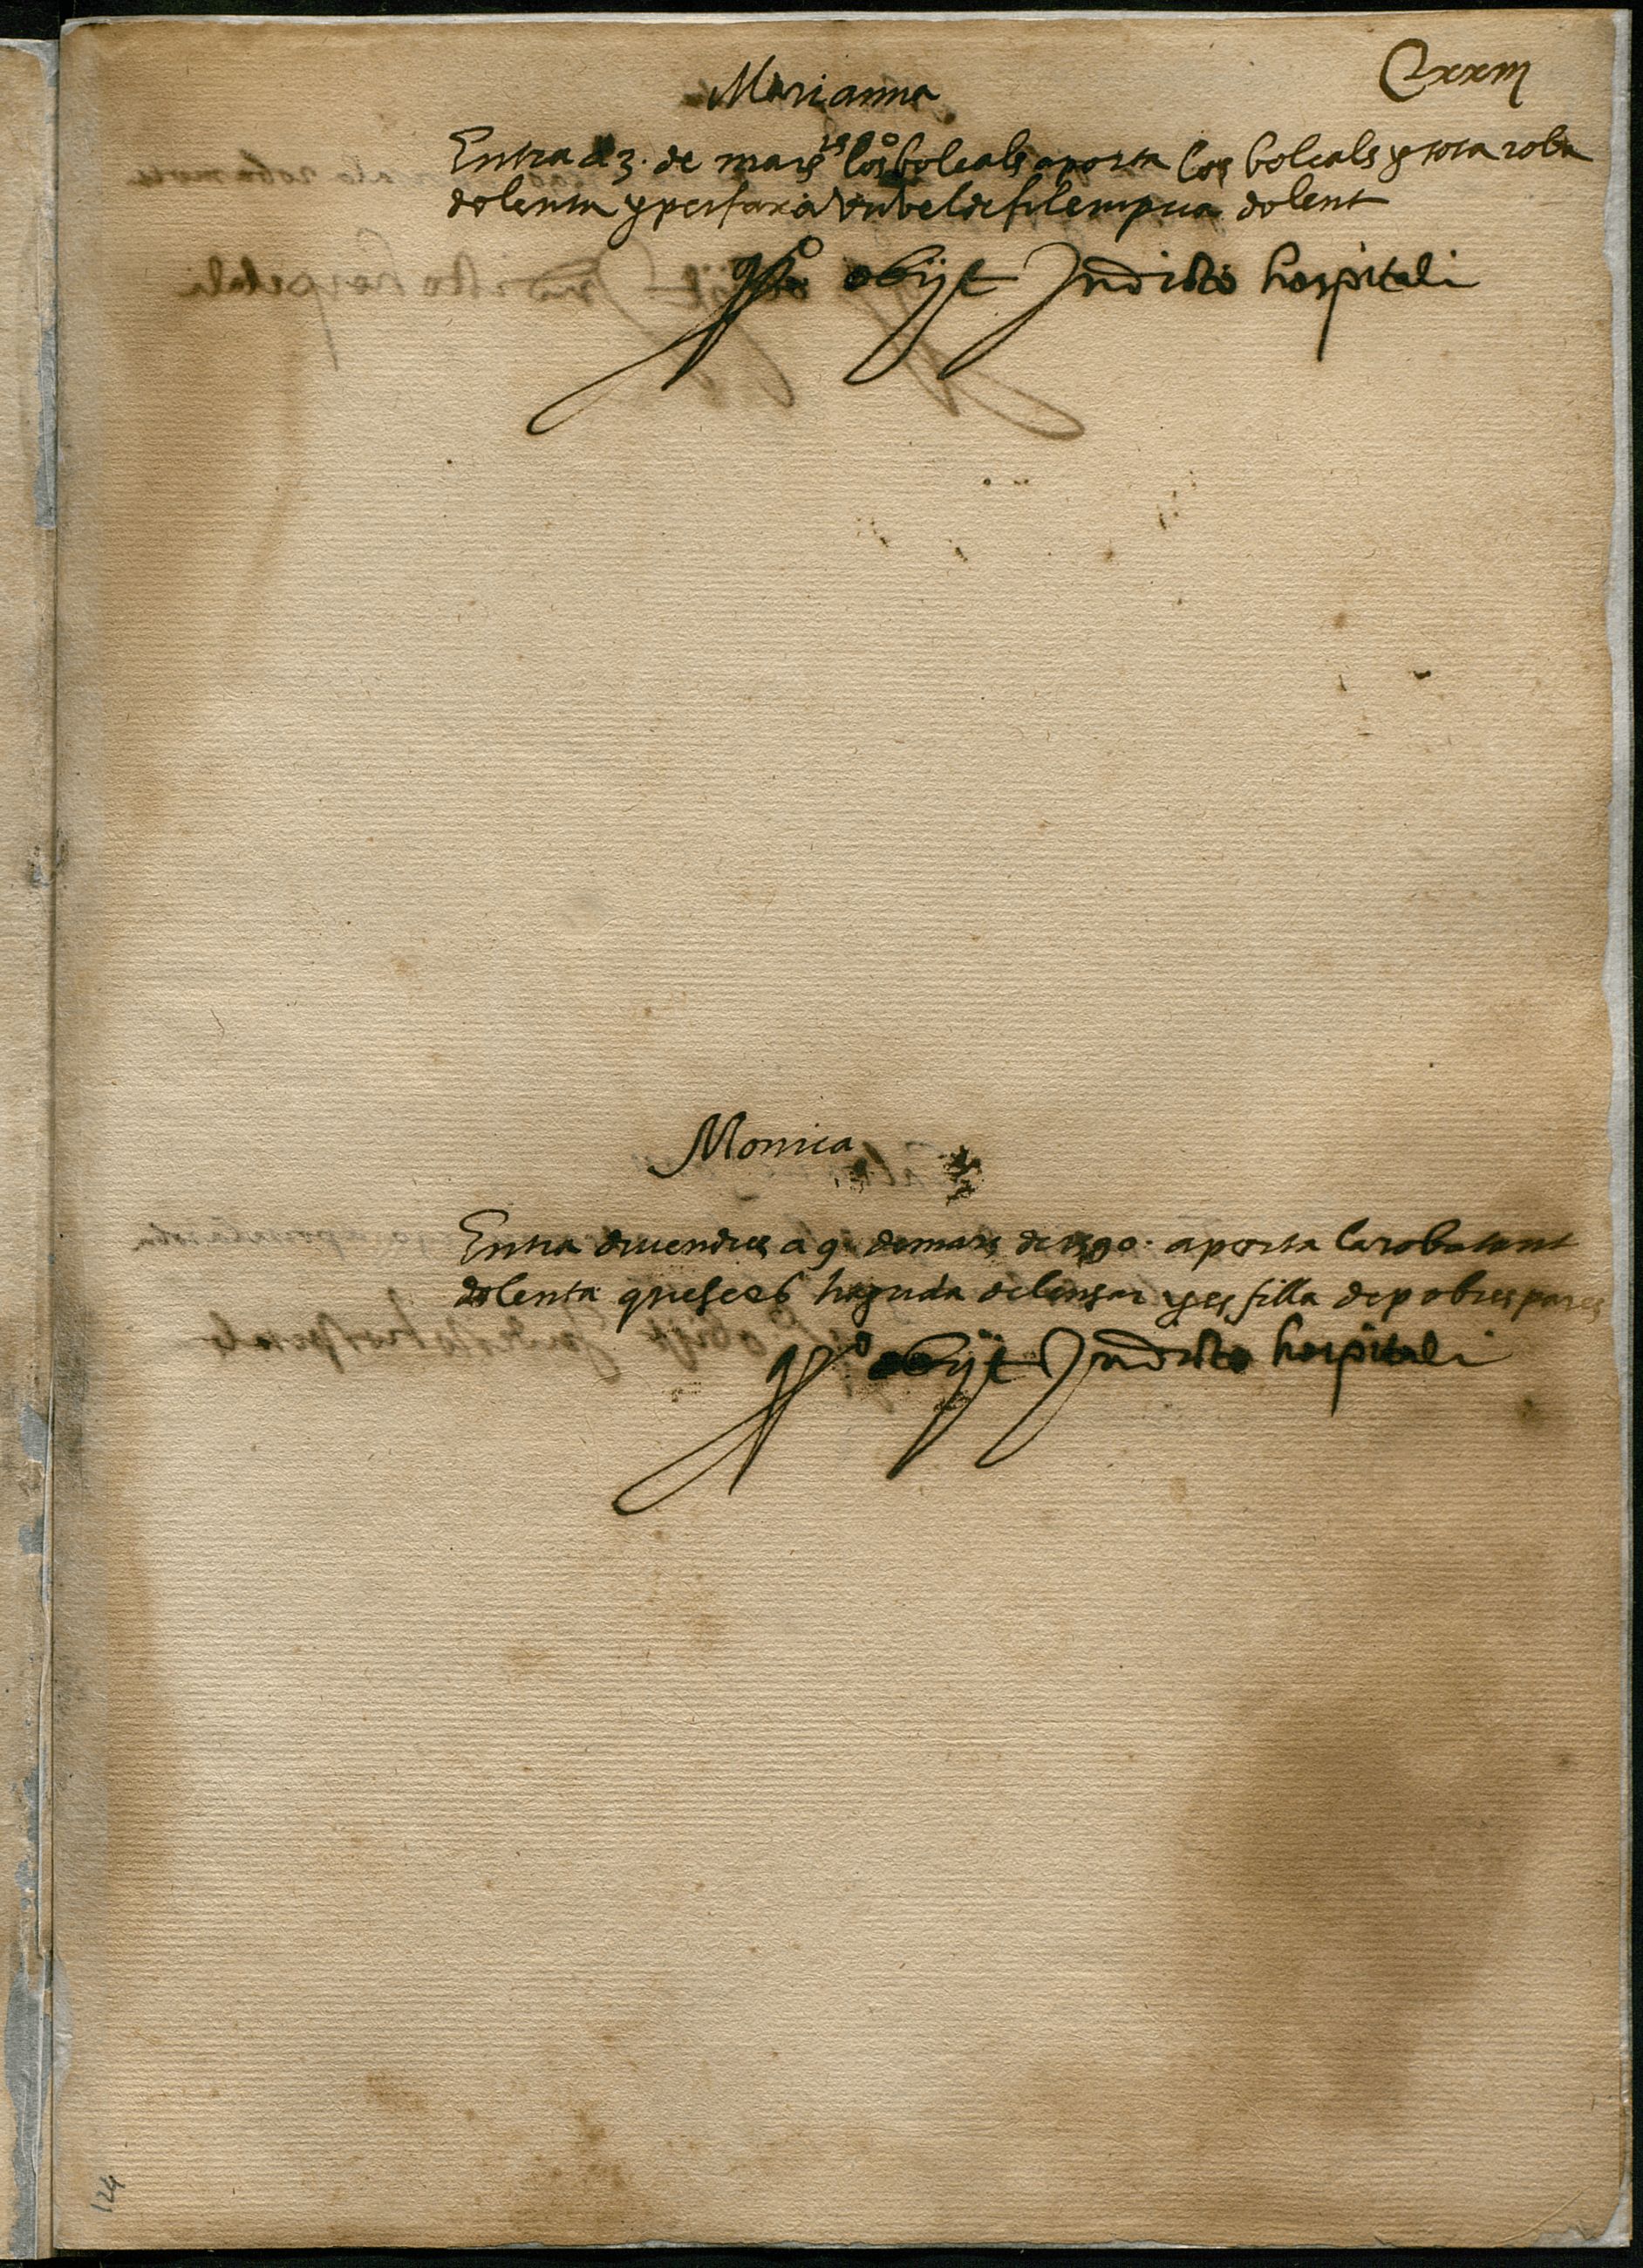 Marianna
Cxxm
Entra a 3. de mars los bolcals aporta los bolcals y tota roba
dolenta y per faxa un vel de fil empua dolent
obijt In dicto hospitali
Monica
Entra divendres a 9 de mars de 1590. aporta la roba tant
dolenta que se es haguda de lensar y es filla de pobres pares
obijt In dicto hospitali
124